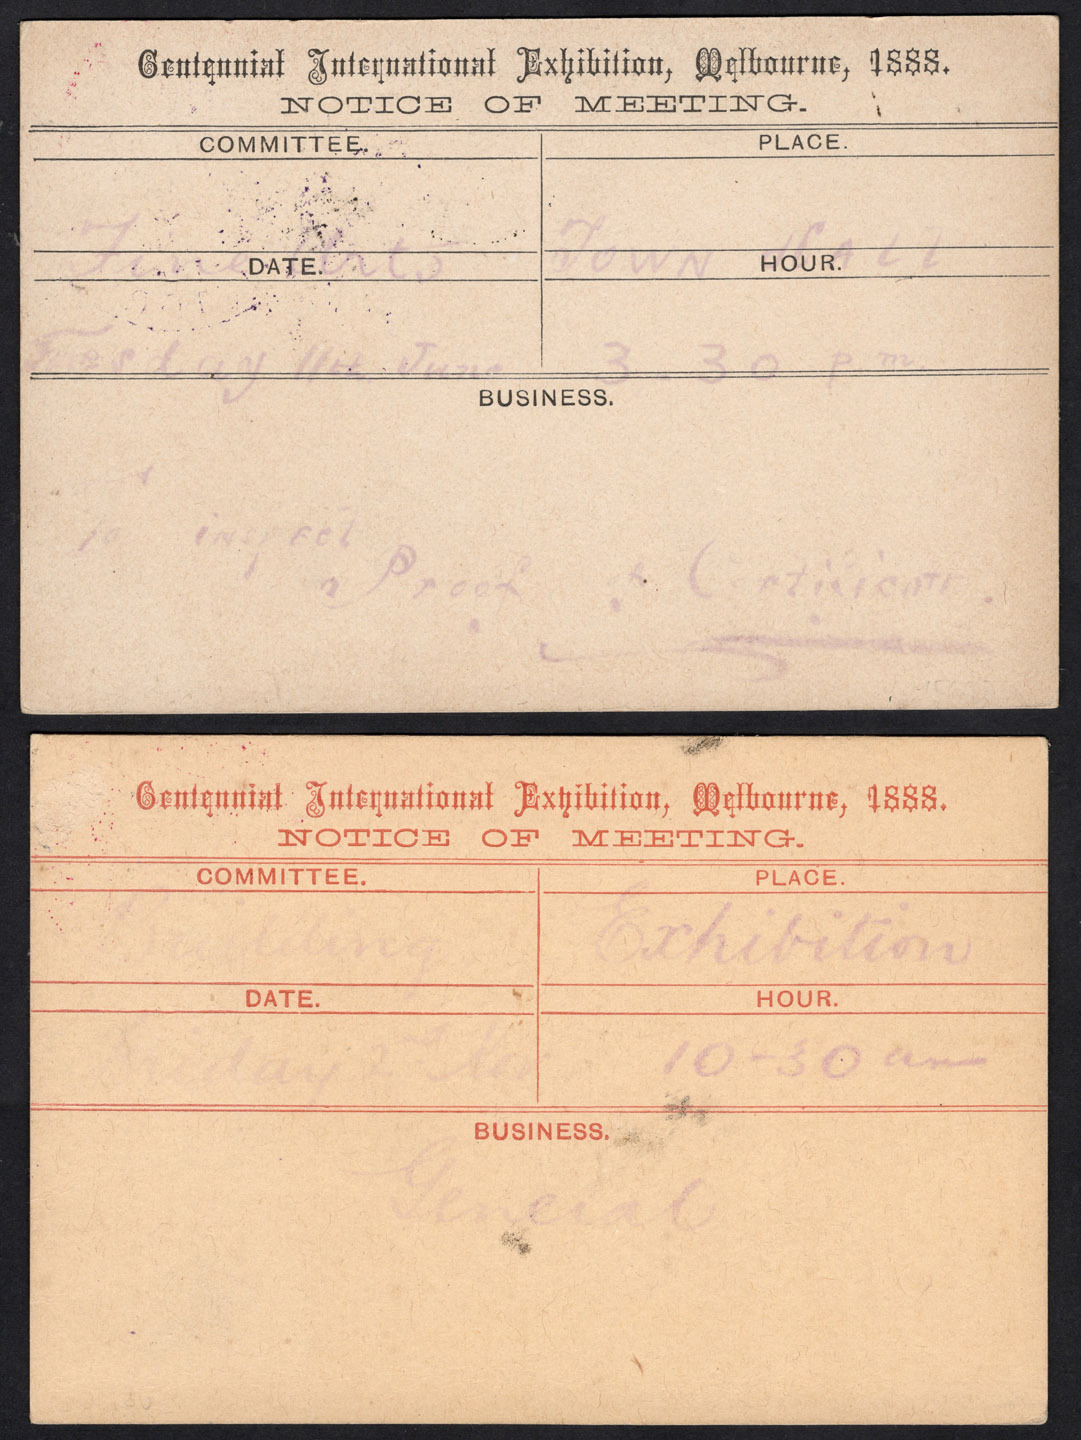 Centennial International Exhibition, Melbourne, 1888.
NOTICE OF MEETING.
COMMITTEE. PLACE.
Fine Arts Town Hall
DATE. HOUR.
Tuesday 11th June 3.30 p.m.
BUSINESS.
To inspect
Proof of Certificate.
Centennial International Exhibition, Melbourne, 1888.
NOTICE OF MEETING.
COMMITTEE. PLACE.
Building Exhibition
DATE. HOUR.
Friday 2nd Nov 10-30 am
BUSINESS.
General